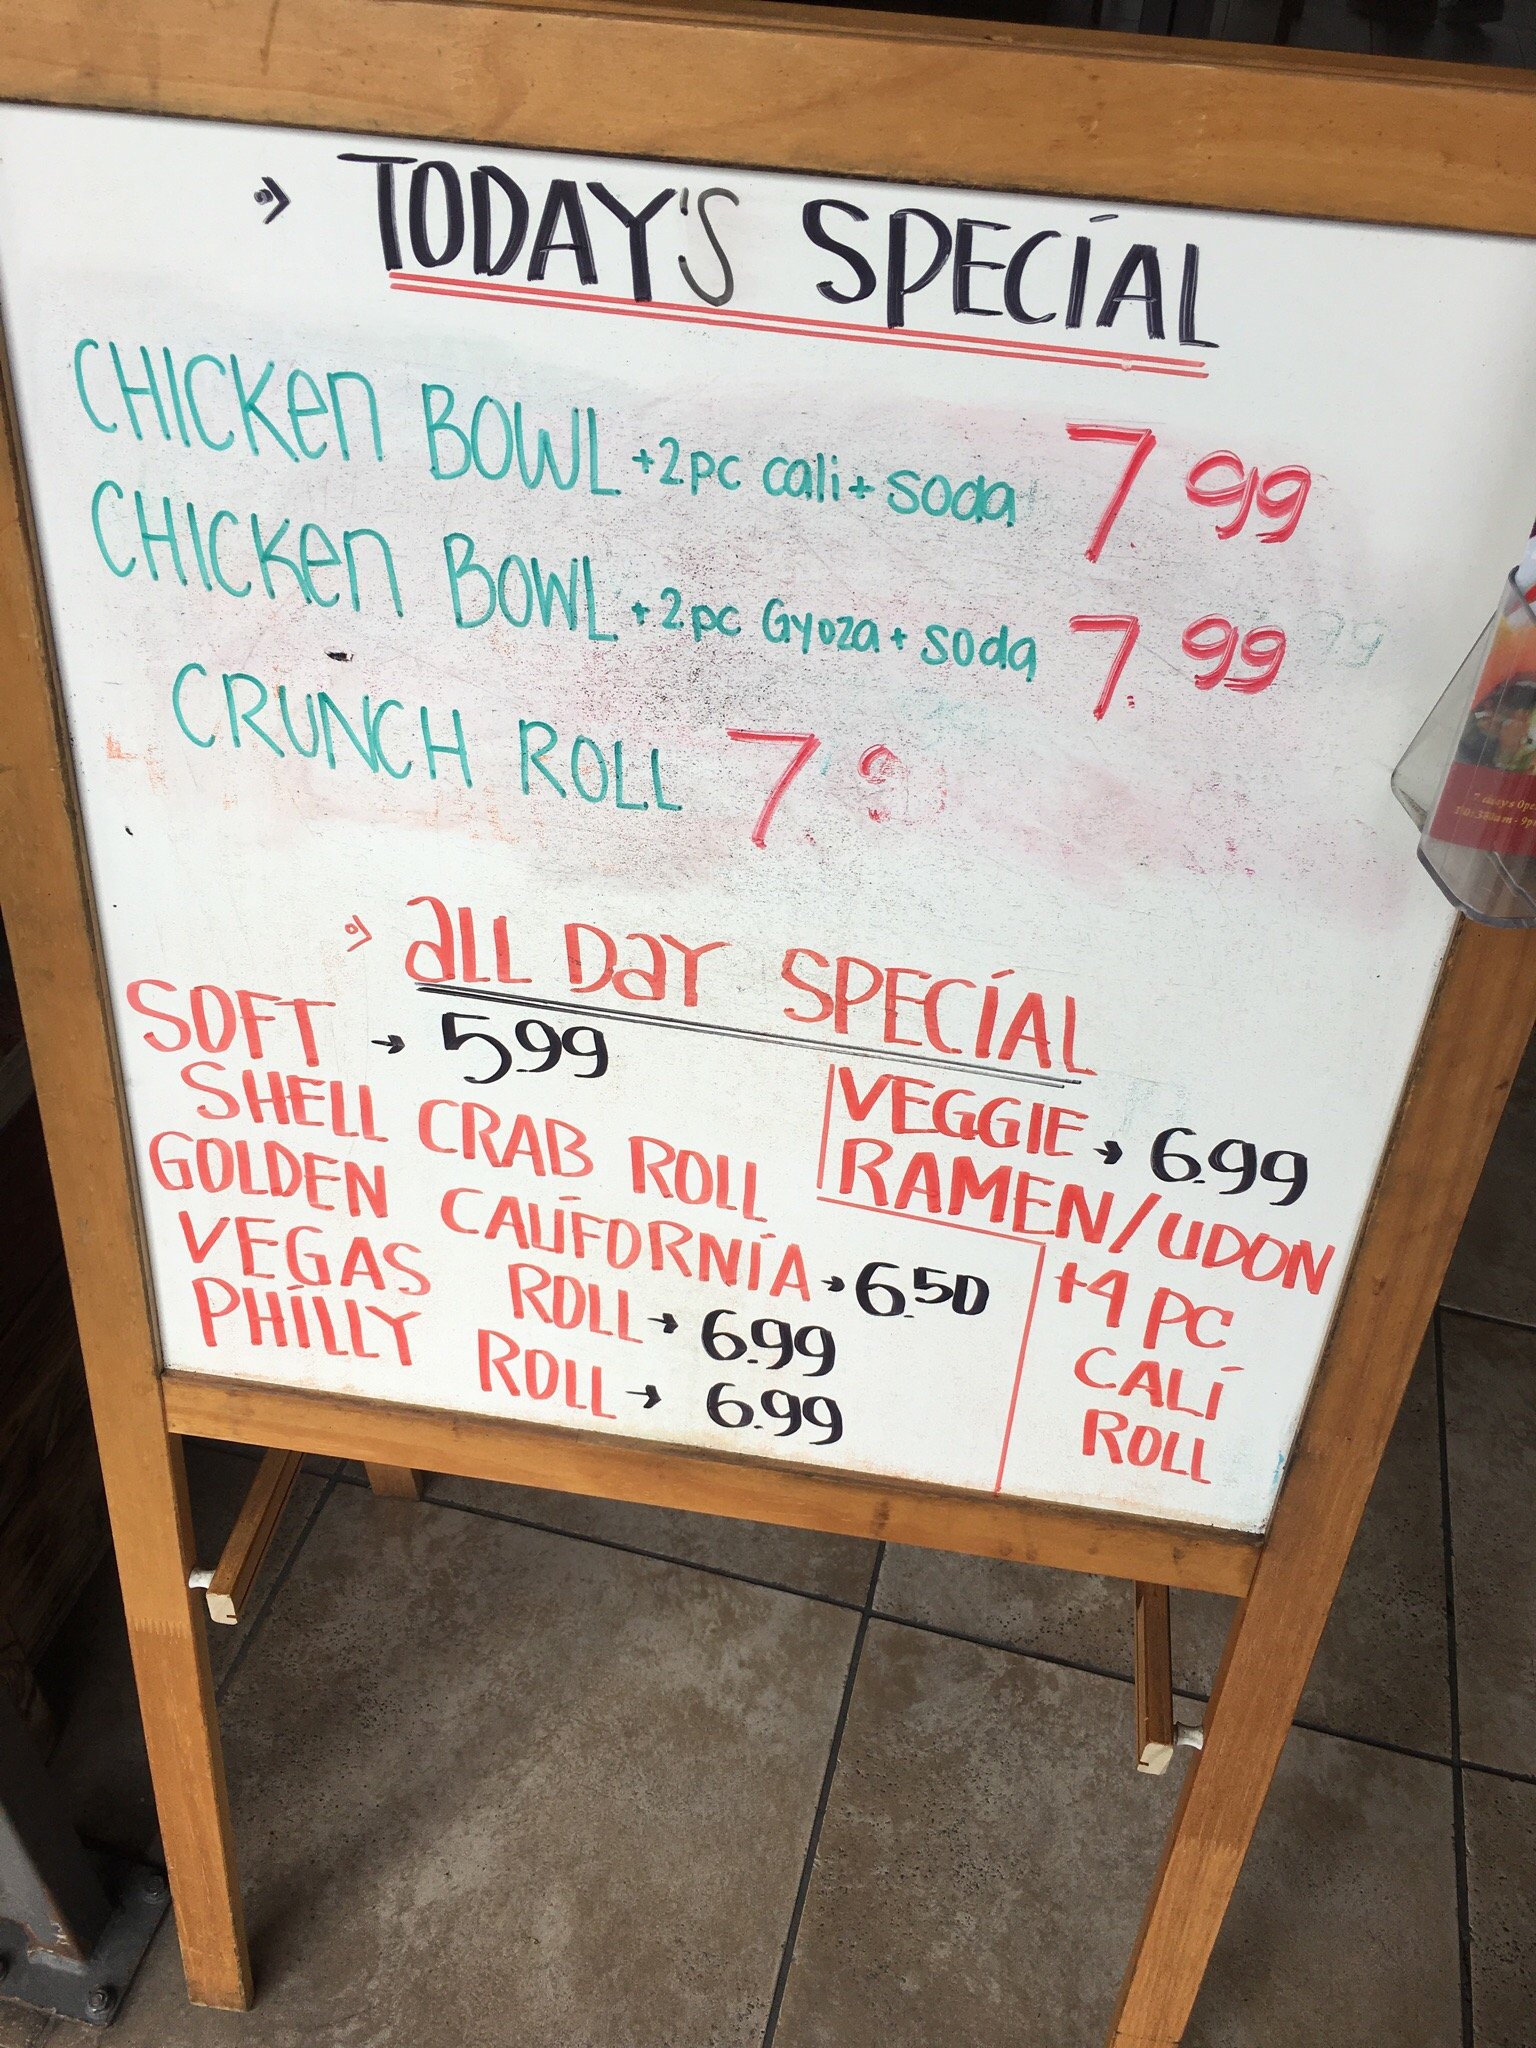 TODAY'S SPECIAL
CHICKEN BOWL +2pc cali + soda 7.99
CHICKEN BOWL +2pc Gyoza + soda 7.99
CRUNCH ROLL 7.9
ALL DAY SPECIAL
SOFT → 5.99
SHELL CRAB ROLL
GOLDEN CALIFORNIA → 6.50
VEGAS ROLL → 6.99
PHILLY ROLL → 6.99
VEGGIE → 6.99
RAMEN/UDON
+4 PC
CALI
ROLL